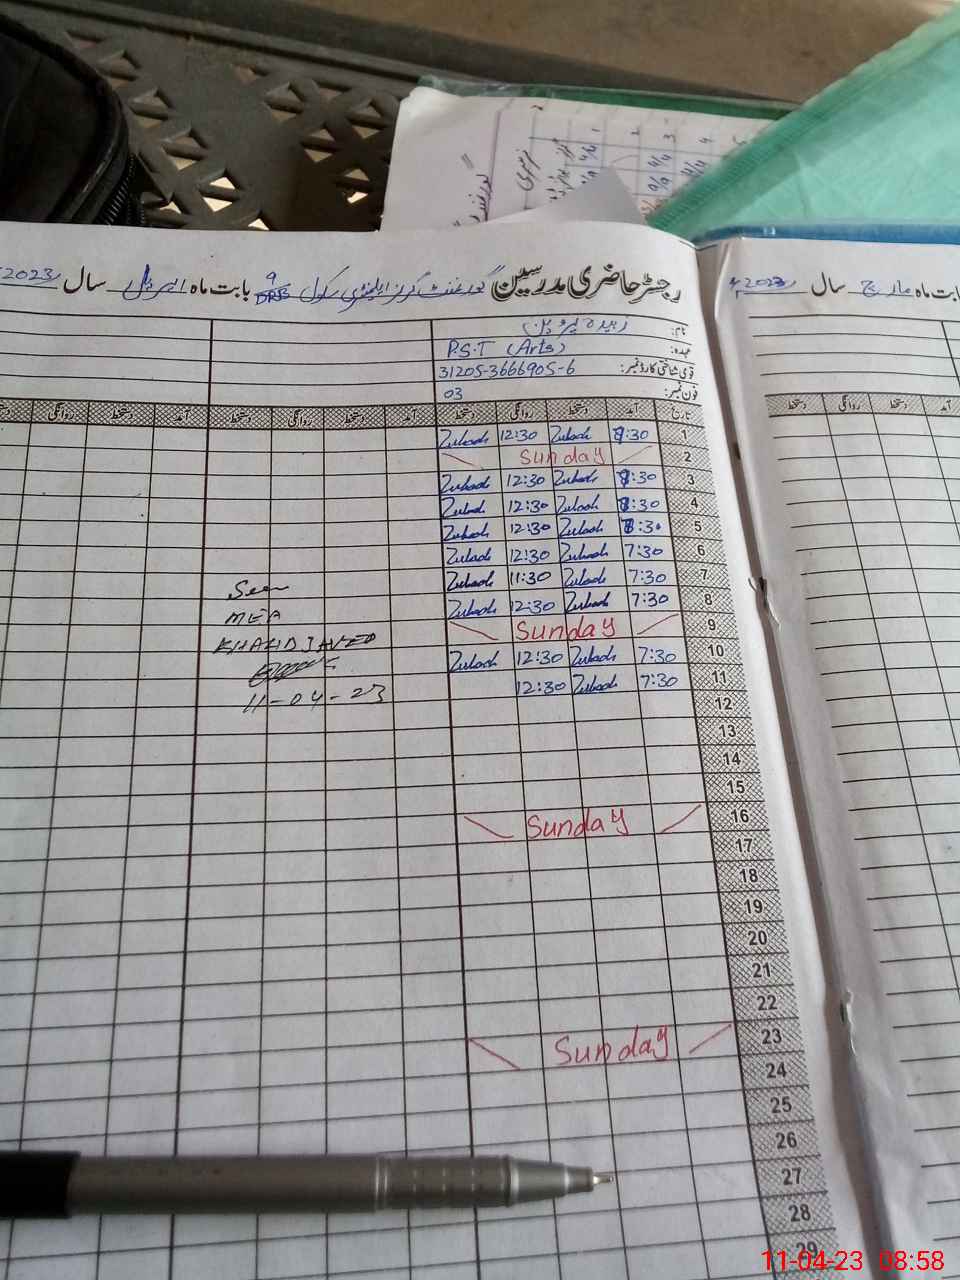 رجسٹر حاضری مدرسین گورنمنٹ گرلز ایلیمنٹری سکول 9 DRB بابت ماہ اپریل سال 2023
نام:
عہدہ: P.S.T (Arts)
قومی شناختی کارڈ نمبر: 31205-3666905-6
فون نمبر: 03
تاریخ آمد دستخط روانگی دستخط آمد دستخط روانگی دستخط آمد دستخط روانگی دستخط
1 8:30 Zubads 12:30 Zubads
2 Sunday
3 8:30 Zubads 12:30 Zubads
4 8:30 Zubads 12:30 Zubads
5 8:30 Zubads 12:30 Zubads
6 7:30 Zubads 12:30 Zubads
7 7:30 Zubads 11:30 Zubads
8 7:30 Zubads 12:30 Zubads
9 Sunday
10 7:30 Zubads 12:30 Zubads
11 7:30 Zubads 12:30
12
13
14
15
16 Sunday
17
18
19
20
21
22
23 Sunday
24
25
26
27
28
29
Seen
MEA
KHALID JAVED
11-04-23
بابت ماہ مارچ سال 2023
آمد دستخط روانگی دستخط
11-04-23 08:58